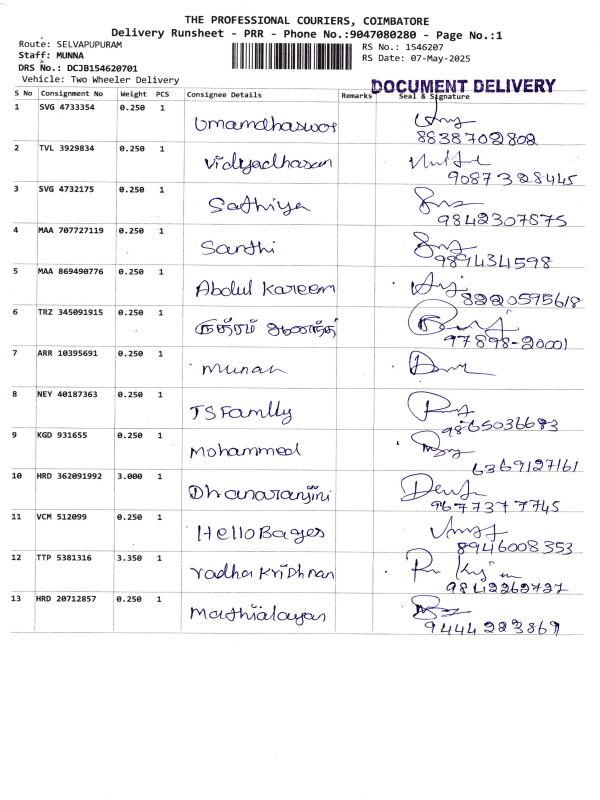 THE PROFESSIONAL COURIERS, COIMBATORE
Delivery Runsheet - PRR - Phone No.:9047080280 - Page No.:1
Route: SELVAPUPURAM
RS No.: 1546207
Staff: MUNNA
RS Date: 07-May-2025
DRS No.: DCJB154620701
Vehicle: Two Wheeler Delivery
DOCUMENT DELIVERY
S No Consignment No Weight PCS Consignee Details Remarks Seal & Signature
1 SVG 4733354 0.250 1
8838702802
2 TVL 3929834 0.250 1 Vidyadhasan
9087328445
3 SVG 4732175 0.250 1 Sathiya
9842307875
4 MAA 707727119 0.250 1 Santhi
9894434598
5 MAA 869490776 0.250 1 Abdul Kareem
8220595618
6 TRZ 345091915 0.250 1
97898-20001
7 ARR 10395691 0.250 1 Munah
8 NEY 40187363 0.250 1 TS Family
9865036683
9 KGD 931655 0.250 1 Mohammed
6369127161
10 HRD 362091992 3.000 1 Dhanaranjini
9677377745
11 VCM 512099 0.250 1 Hello Bages
8946008353
12 TTP 5381316 3.350 1 radha KriDhnan
9842262727
13 HRD 20712857 0.250 1 Mathialagan
9444223869